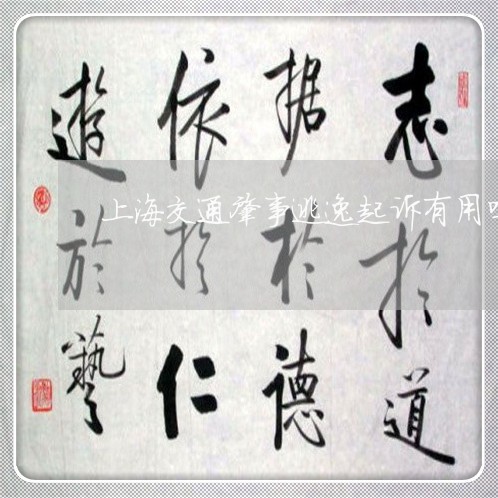 志扵道
据扵德
依扵仁
遊於藝
上海交通肇事逃逸起诉有用